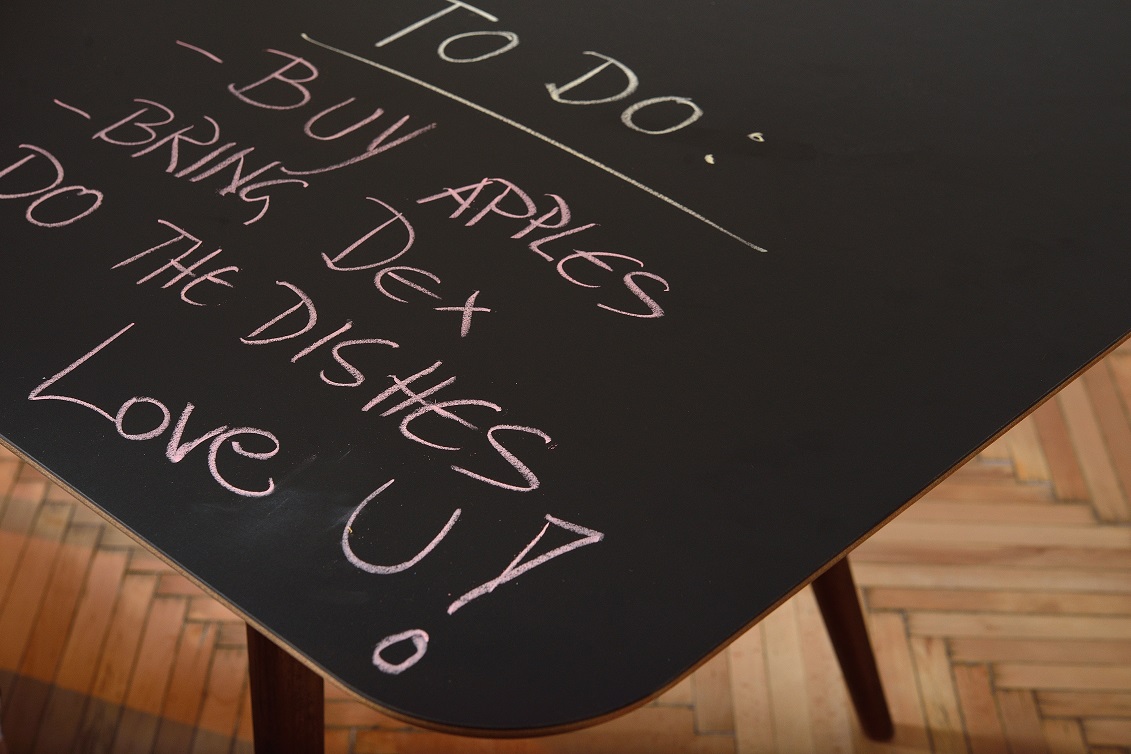 TO DO:
- BUY APPLES
- BRING DEX
DO THE DISHES
Love U!